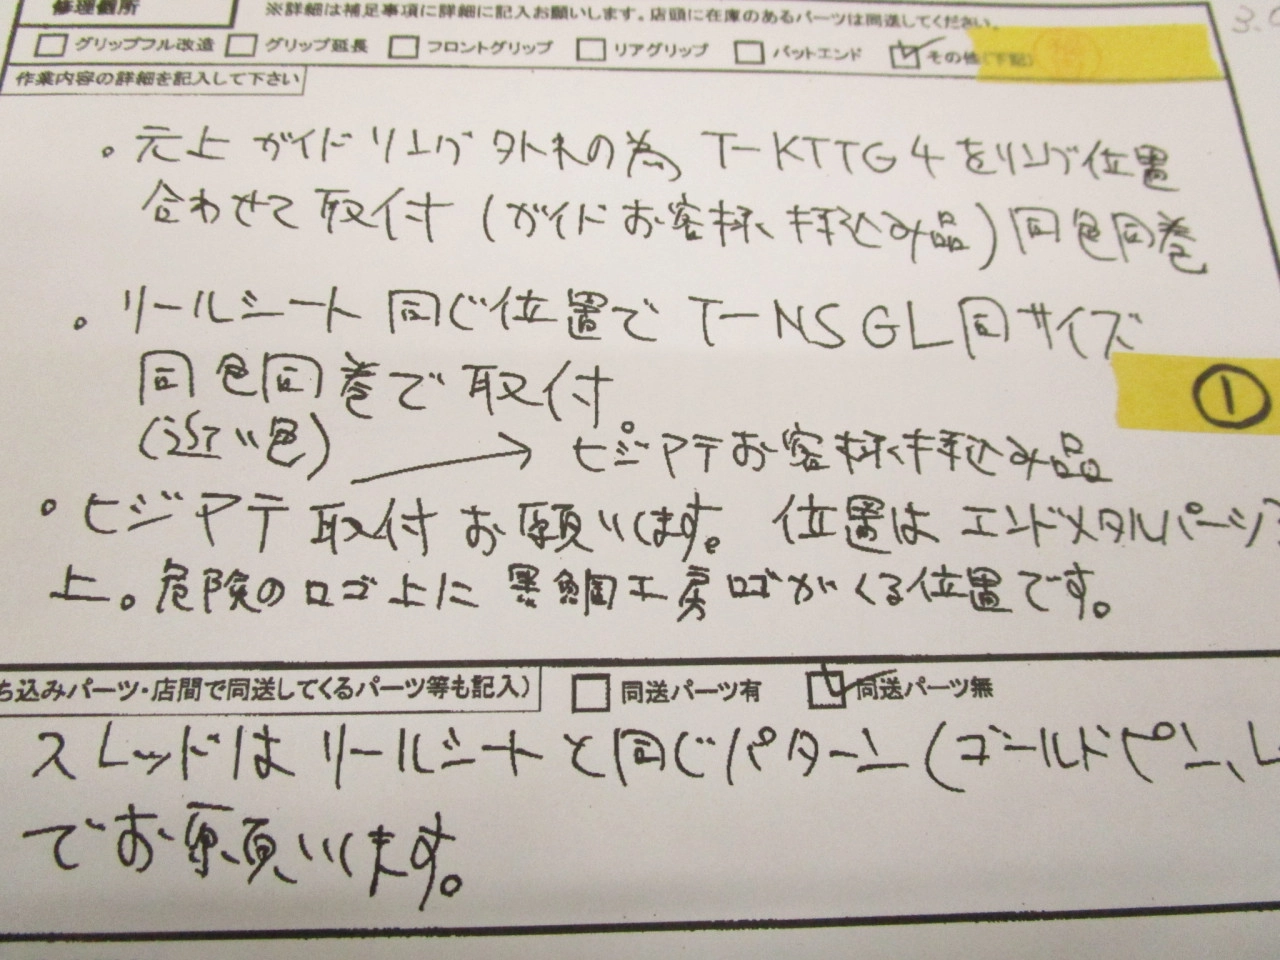 修理個所
※詳細は補足事項に詳細に記入お願いします。店頭に在庫のあるパーツは同送してください。
グリップフル改造 グリップ延長 フロントグリップ リアグリップ バットエンド その他(下記)
作業内容の詳細を記入して下さい
・元上 ガイドリング外れの為 T-KTTG4をリング位置
合わせて取付(ガイドお客様持込み品)同色同巻
・リールシート同じ位置で T-NSGL同サイズ
同色同巻で取付。
(近い色)
→ ヒジアテお客様持込み品
・ヒジアテ取付お願いします。位置は エンドメタルパーツ
上。危険のロゴ上に 黒鯛工房ロゴがくる位置です。
①
ち込みパーツ・店間で同送してくるパーツ等も記入) 同送パーツ有 同送パーツ無
スレッドは リールシートと同じパターン(ゴールドピン、
でお願いします。